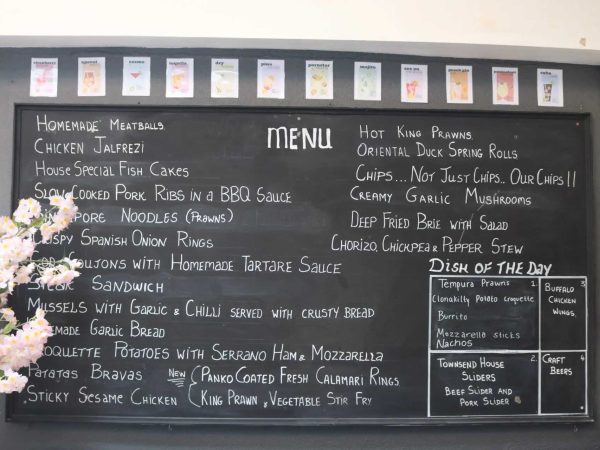 MENU
HOMEMADE MEATBALLS.
CHICKEN JALFREZI
HOUSE SPECIAL FISH CAKES
SLOW COOKED PORK RIBS IN A BBQ SAUCE
NOODLES (PRAWNS)
SPANISH ONION RINGS
WITH HOMEMADE TARTARE SAUCE
SANDWICH
MUSSELS WITH GARLIC & CHILLI SERVED WITH CRUSTY BREAD
GARLIC BREAD
POTATOES WITH SERRANO HAM & MOZZARELLA
PATATAS BRAVAS
STICKY SESAME CHICKEN
NEW
PANKO COATED FRESH CALAMARI RINGS
KING PRAWN & VEGETABLE STIR FRY
HOT KING PRAWNS.
ORIENTAL DUCK SPRING ROLLS
CHIPS...NOT JUST CHIPS.. OUR CHIPS!!
CREAMY GARLIC MUSHROOMS
DEEP FRIED BRIE WITH SALAD
CHORIZO, CHICKPEA & PEPPER STEW
DISH OF THE DAY
TEMPURA PRAWNS 1.
Clonakilty Potato croquette
BURRITO
MOZZARELLA STICKS
NACHOS
2.
TOWNSEND HOUSE
SLIDERS
BEEF SLIDER AND
PORK SLIDER
3
BUFFALO
CHICKEN
WINGS.
4
CRAFT
BEERS